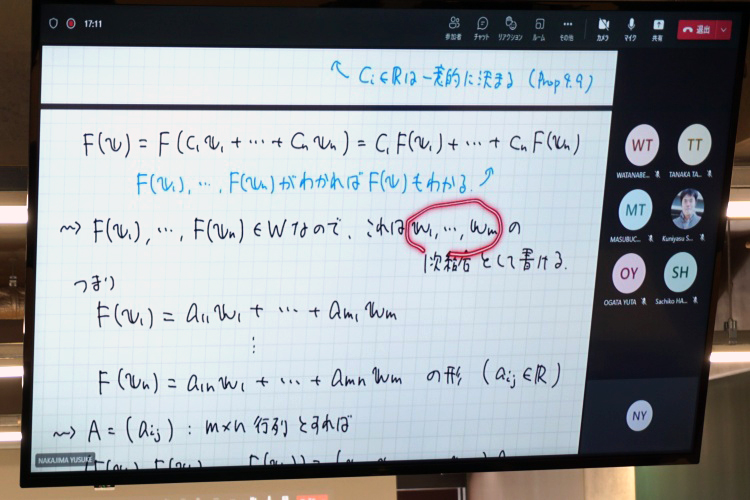 17:11
参加者 チャット リアクション ルーム その他 カメラ マイク 共有 退出
↖ Ci∈Rは一意的に決まる (Prop 9.9)
F(v) = F(c1v1 + ··· + cnvn) = c1F(v1) + ··· + cnF(vn)
F(v1), ···, F(vn)がわかればF(v)もわかる. ↗
⇝ F(v1), ···, F(vn)∈Wなので、これはw1, ···, wmの
1次結合として書ける.
つまり
F(v1) = a11w1 + ··· + am1wm
⋮
F(vn) = a1nw1 + ··· + amnwm の形 (aij∈R)
⇝ A = (aij) : m×n 行列とすれば
NAKAJIMA YUSUKE
WT
WATANABE...
TT
TANAKA TA...
MT
MASUBUC...
Kuniyasu S...
OY
OGATA YUTA
SH
Sachiko HA...
NY